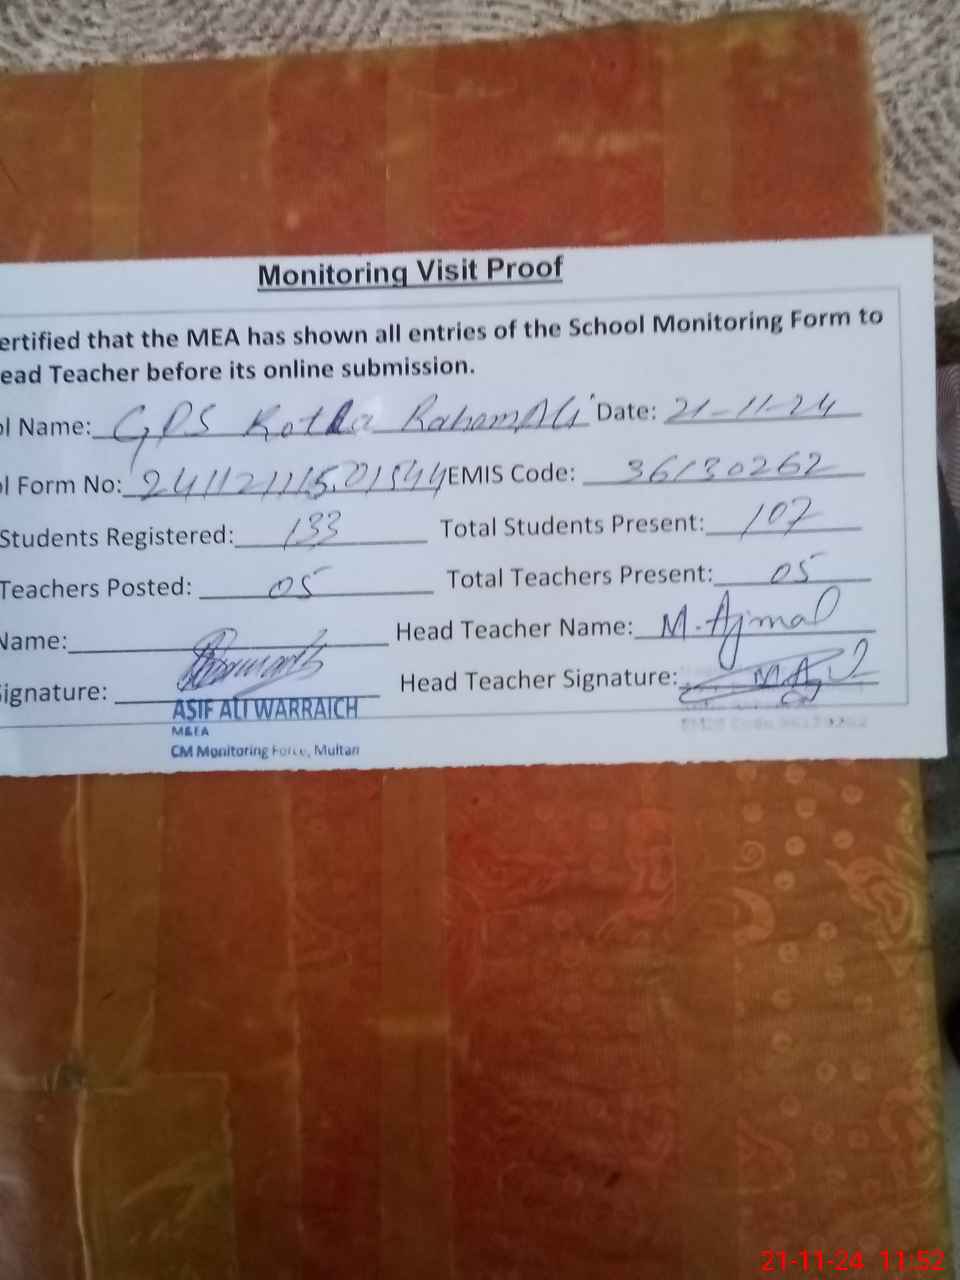 Monitoring Visit Proof
ertified that the MEA has shown all entries of the School Monitoring Form to
ead Teacher before its online submission.
ol Name: GPS Kotla RahamAli Date: 21-11-24
ol Form No: EMIS Code: 36130262
Students Registered: 133 Total Students Present: 107
Teachers Posted: 05 Total Teachers Present: 05
Name: Head Teacher Name: M. Ajmal
ignature: Head Teacher Signature:
ASIF ALI WARRAICH
M&EA
CM Monitoring Force, Multan
21-11-24 11:52